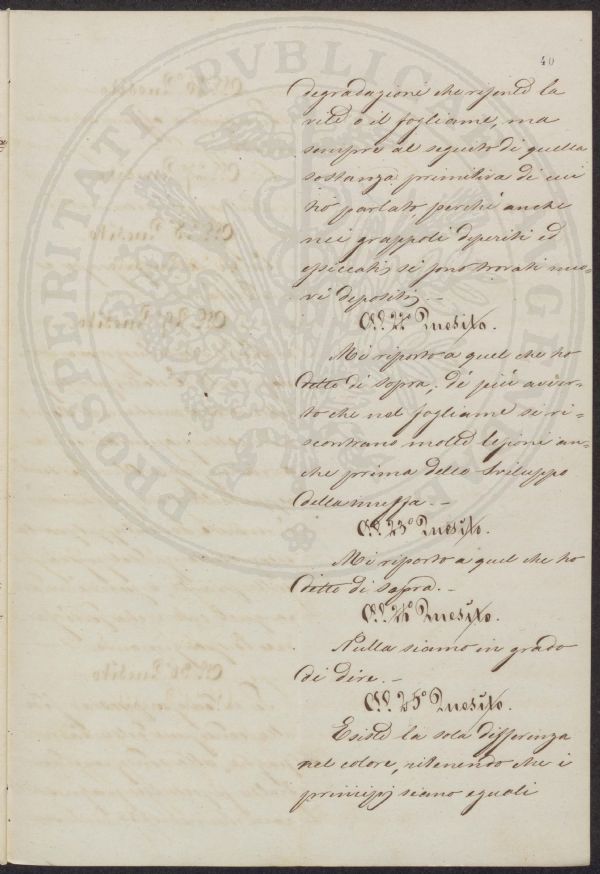 40
degradazioni che risente la
vite o il fogliame, ma
sempre al seguito di quella
sostanza primitiva di cui
ho parlato, perchè anche
nei grappoli deperiti ed
essiccati, si sono trovati nuo=
vi depositi. –
All. 22º Quesito.
Mi riporto a quel che ho
detto di sopra; di più avver=
to che nel fogliame si ri=
scontrano molte lesioni an=
che prima dello sviluppo
della muffa. –
All. 23º Quesito.
Mi riporto a quel che ho
detto di sopra. –
All. 24º Quesito.
Nulla siamo in grado
di dire. –
All. 25º Quesito.
Esiste la sola differenza
nel colore, ritenendo che i
principj siano eguali
PROSPERITATI PVBLICAE